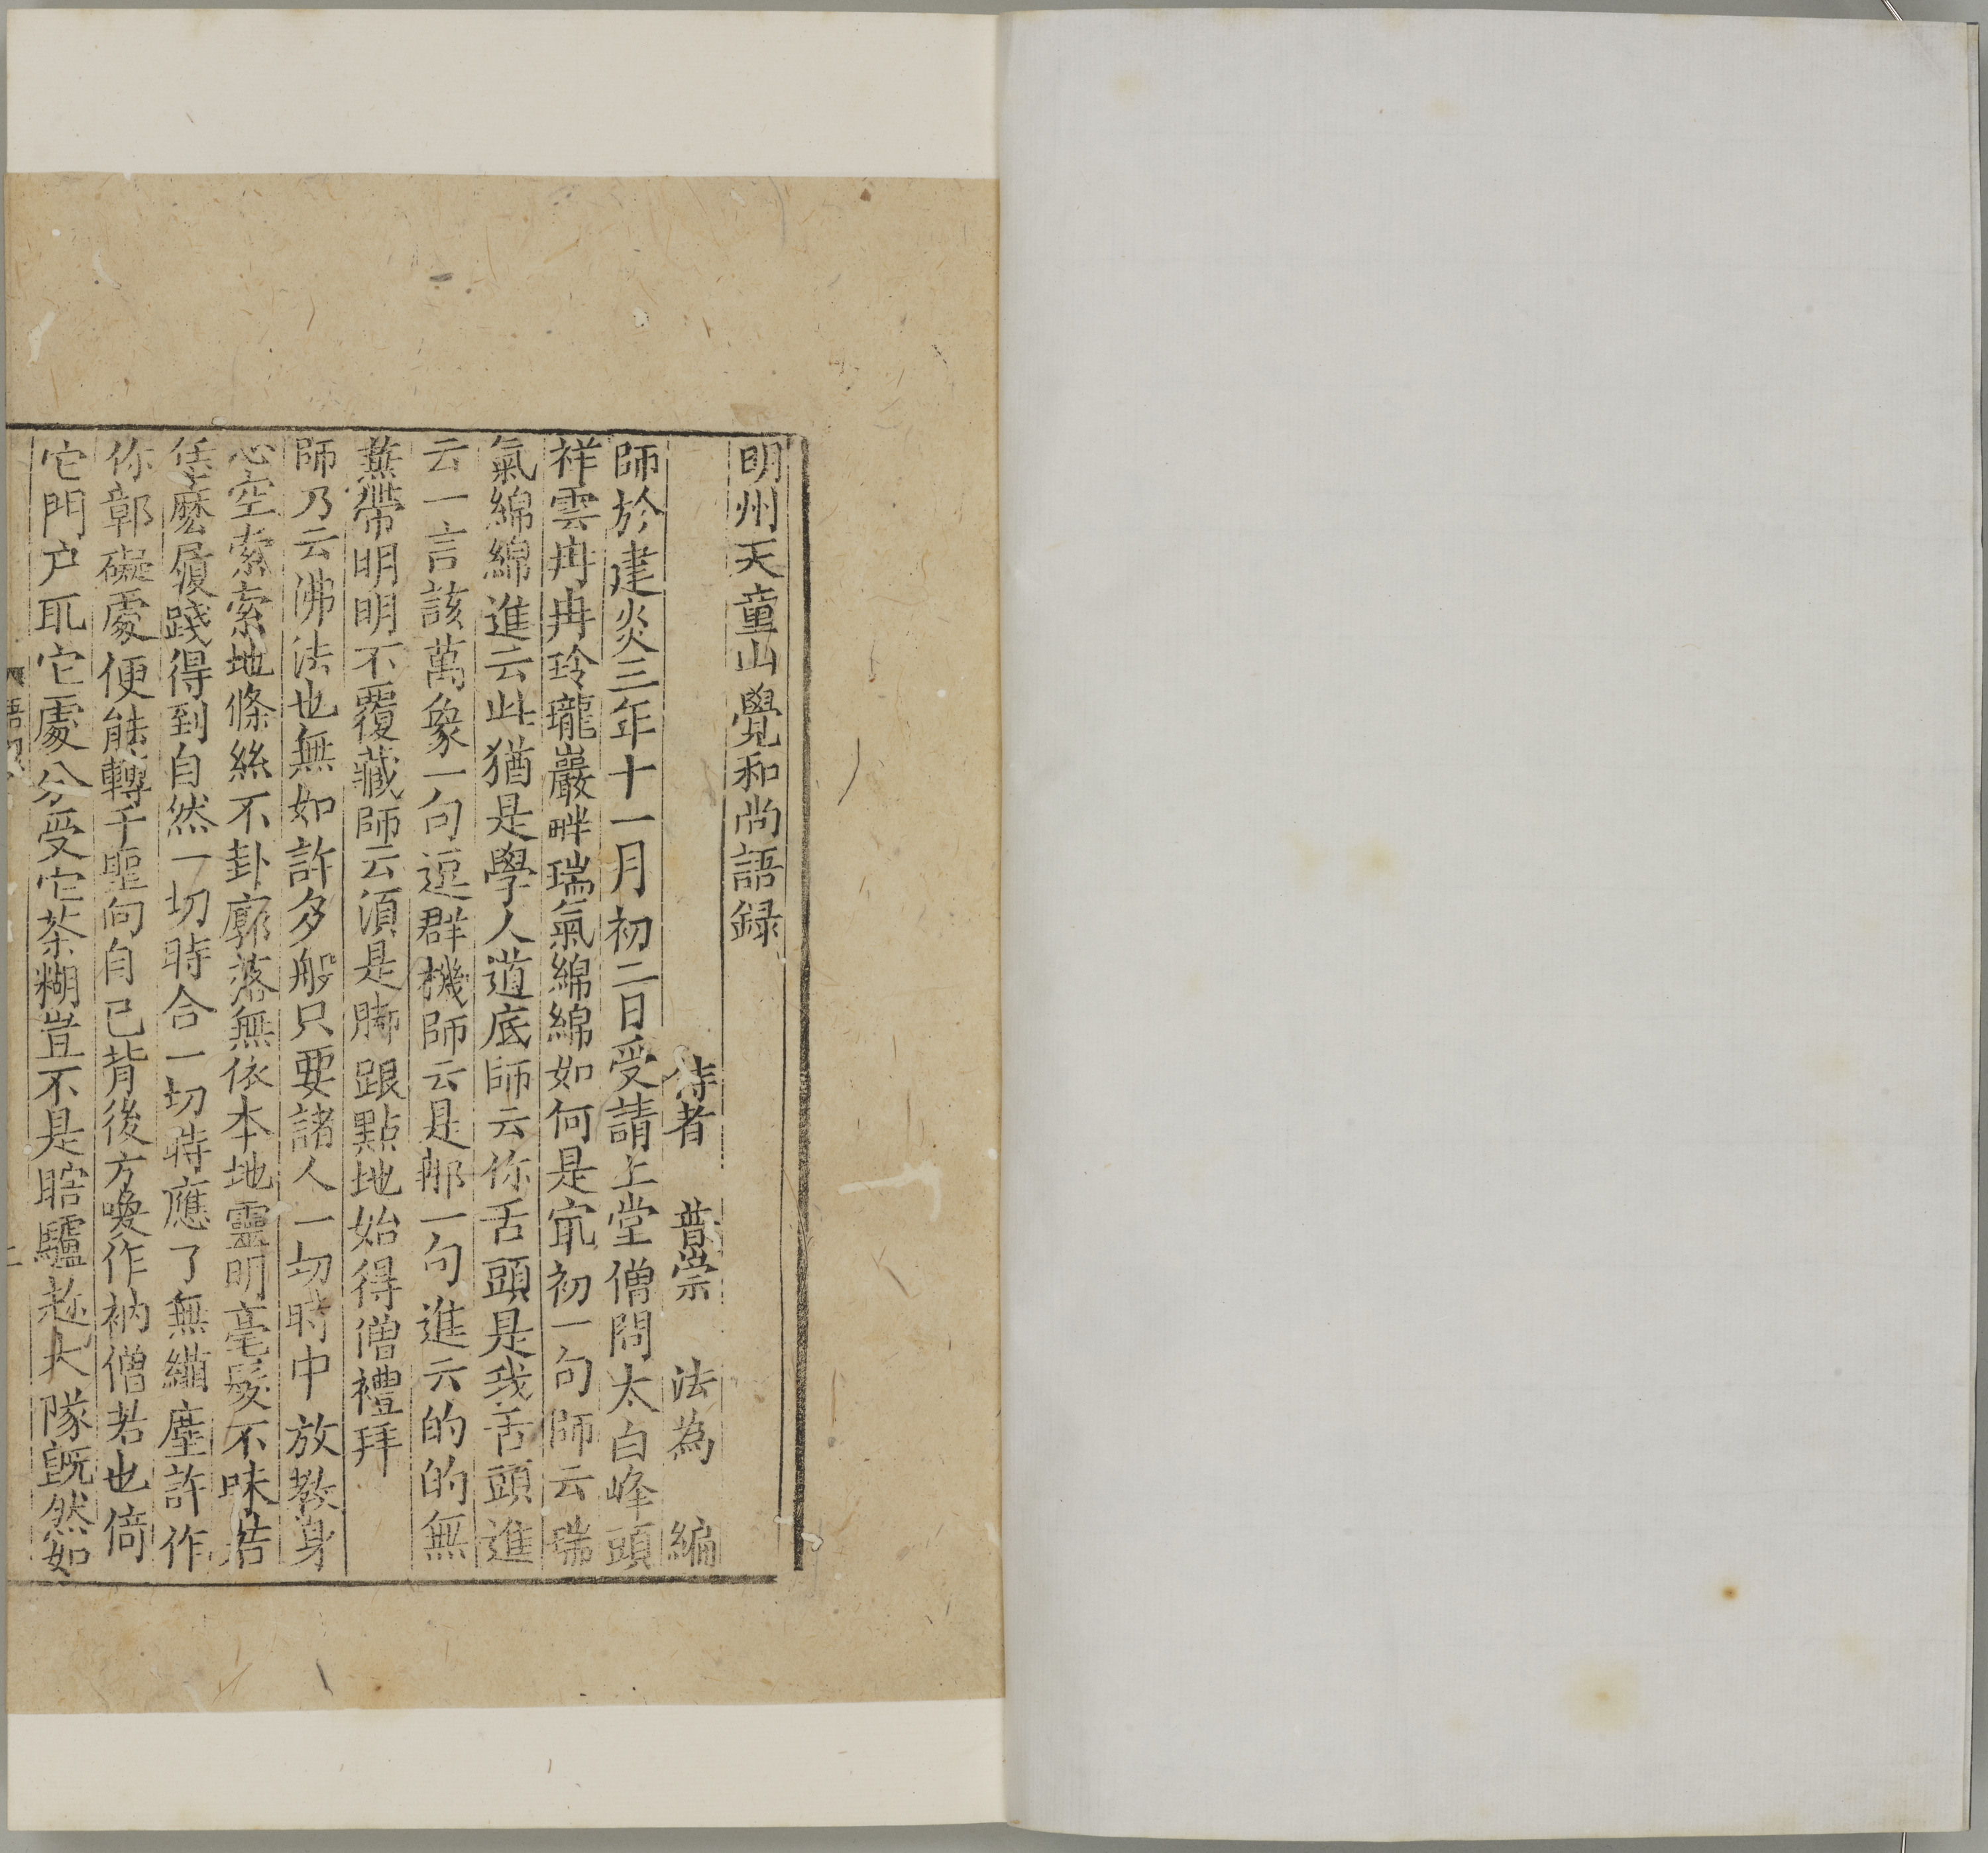 明州天童山覺和尚語録
侍者 普崇 法為 編
師於建炎三年十一月初二日受請上堂僧問太白峰頭
祥雲冉冉玲瓏巖畔瑞氣綿綿如何是㝡初一句師云瑞
氣綿綿進云此猶是學人道底師云你舌頭是我舌頭進
云一言該萬象一句逗群機師云是那一句進云的的無
蕪帶明明不覆藏師云湏是脚跟點地始得僧禮拜
師乃云沸法也無如許多般只要諸人一切時中放教身
心空索索地條絲不卦廓落無依本地靈明毫髮不昧若
恁麽履踐得到自然一切時合一切時應了無纖塵許作
你鄣礙處便能轉千聖向自己背後方喚作衲僧若也倚
它門户取它處分受它茶糊豈不是瞎驢趂大隊旣然如
語録